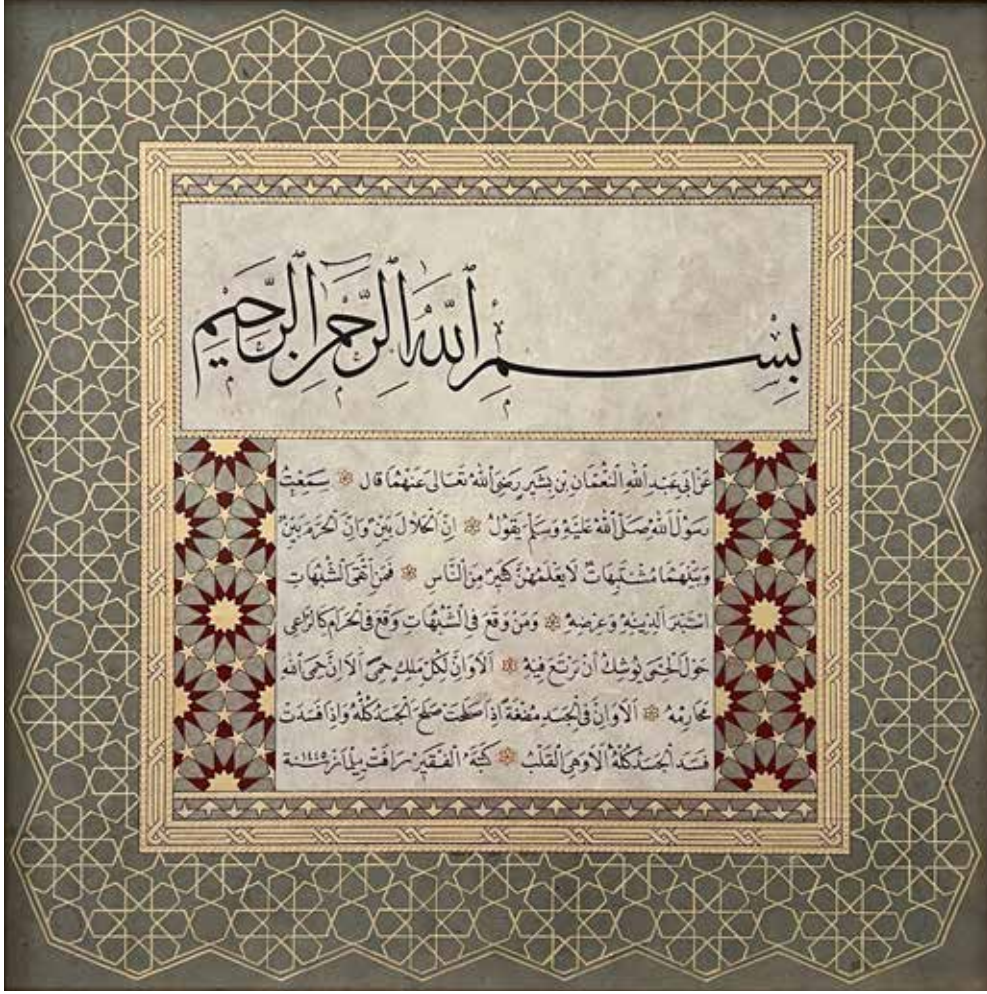 بِسْمِ اللهِ الرَّحْمٰنِ الرَّحِيمِ
عَنْ اَبِي عَبْدِ اللهِ النُّعْمَانِ بْنِ بَشِيرٍ رَضِيَ اللهُ تَعَالٰى عَنْهُمَا قَالَ سَمِعْتُ
رَسُولَ اللهِ صَلَّى اللهُ عَلَيْهِ وَسَلَّمَ يَقُولُ اِنَّ الْحَلَالَ بَيِّنٌ وَاِنَّ الْحَرَامَ بَيِّنٌ
وَبَيْنَهُمَا مُشْتَبِهَاتٌ لَا يَعْلَمُهُنَّ كَثِيرٌ مِنَ النَّاسِ فَمَنِ اتَّقَى الشُّبُهَاتِ
اسْتَبْرَأَ لِدِينِهِ وَعِرْضِهِ وَمَنْ وَقَعَ فِي الشُّبُهَاتِ وَقَعَ فِي الْحَرَامِ كَالرَّاعِي
حَوْلَ الْحِمٰى يُوشِكُ اَنْ يَرْتَعَ فِيهِ اَلَا وَاِنَّ لِكُلِّ مَلِكٍ حِمًى اَلَا اِنَّ حِمَى اللهِ
مَحَارِمُهُ اَلَا وَاِنَّ فِي الْجَسَدِ مُضْغَةً اِذَا صَلَحَتْ صَلَحَ الْجَسَدُ كُلُّهُ وَاِذَا فَسَدَتْ
فَسَدَ الْجَسَدُ كُلُّهُ اَلَا وَهِيَ الْقَلْبُ كَتَبَهُ الْفَقِيرُ رَأفَتْ سنة